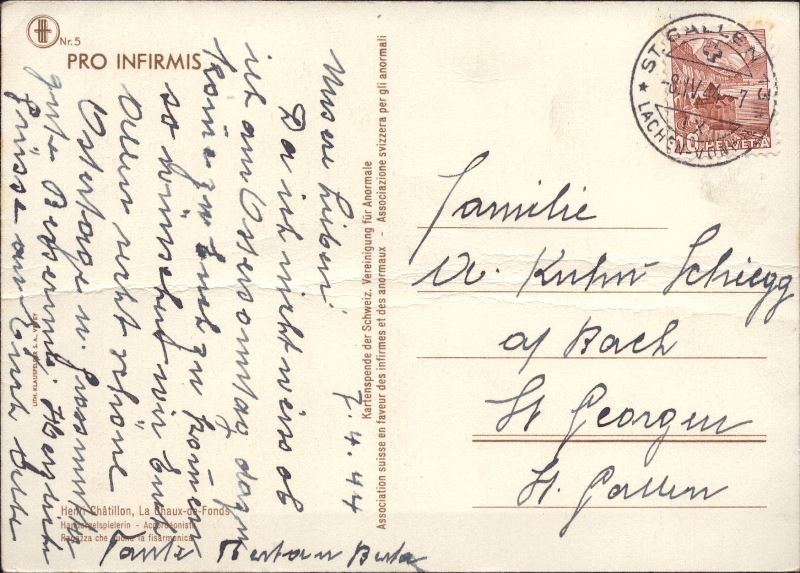 Nr. 5
PRO INFIRMIS
Meine Lieben!
7.4.44
Da ich nicht weiss ob
ich am Ostersonntag dazu
komme zu Euch zu kommen
so wünschen wir Euch
Allen recht schöne
Ostertage u. Gesundheit
gute Besserung. Herzliche
Grüsse an Euch Alle
Tante Berta
Henri Châtillon, La Chaux-de-Fonds
Handorgelspielerin - Accordéoniste
Ragazza che suona la fisarmonica
LITH. KLAUSFELDER S.A., VEVEY
Kartenspende der Schweiz. Vereinigung für Anormale
Association suisse en faveur des infirmes et des anormaux - Associazione svizzera per gli anormali
ST. GALLEN 13
-8.IV.44-7
LACHEN-VONWIL
10 HELVETIA
Familie
A. Kuhn Schiegg
a/ Bach
St Georgen
St. Gallen